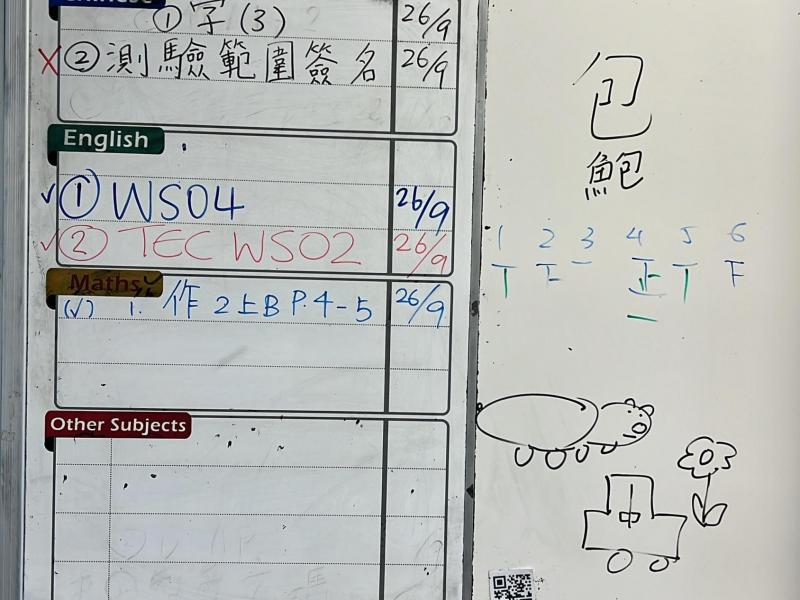 Chinese
① 字 (3) 26/9
✗ ② 測驗範圍簽名 26/9
English
✓ ① WS04 26/9
✓ ② TEC WS02 26/9
Maths
(✓) 1. 作 2上B P.4-5 26/9
Other Subjects
包
鮑
1 2 3 4 5 6